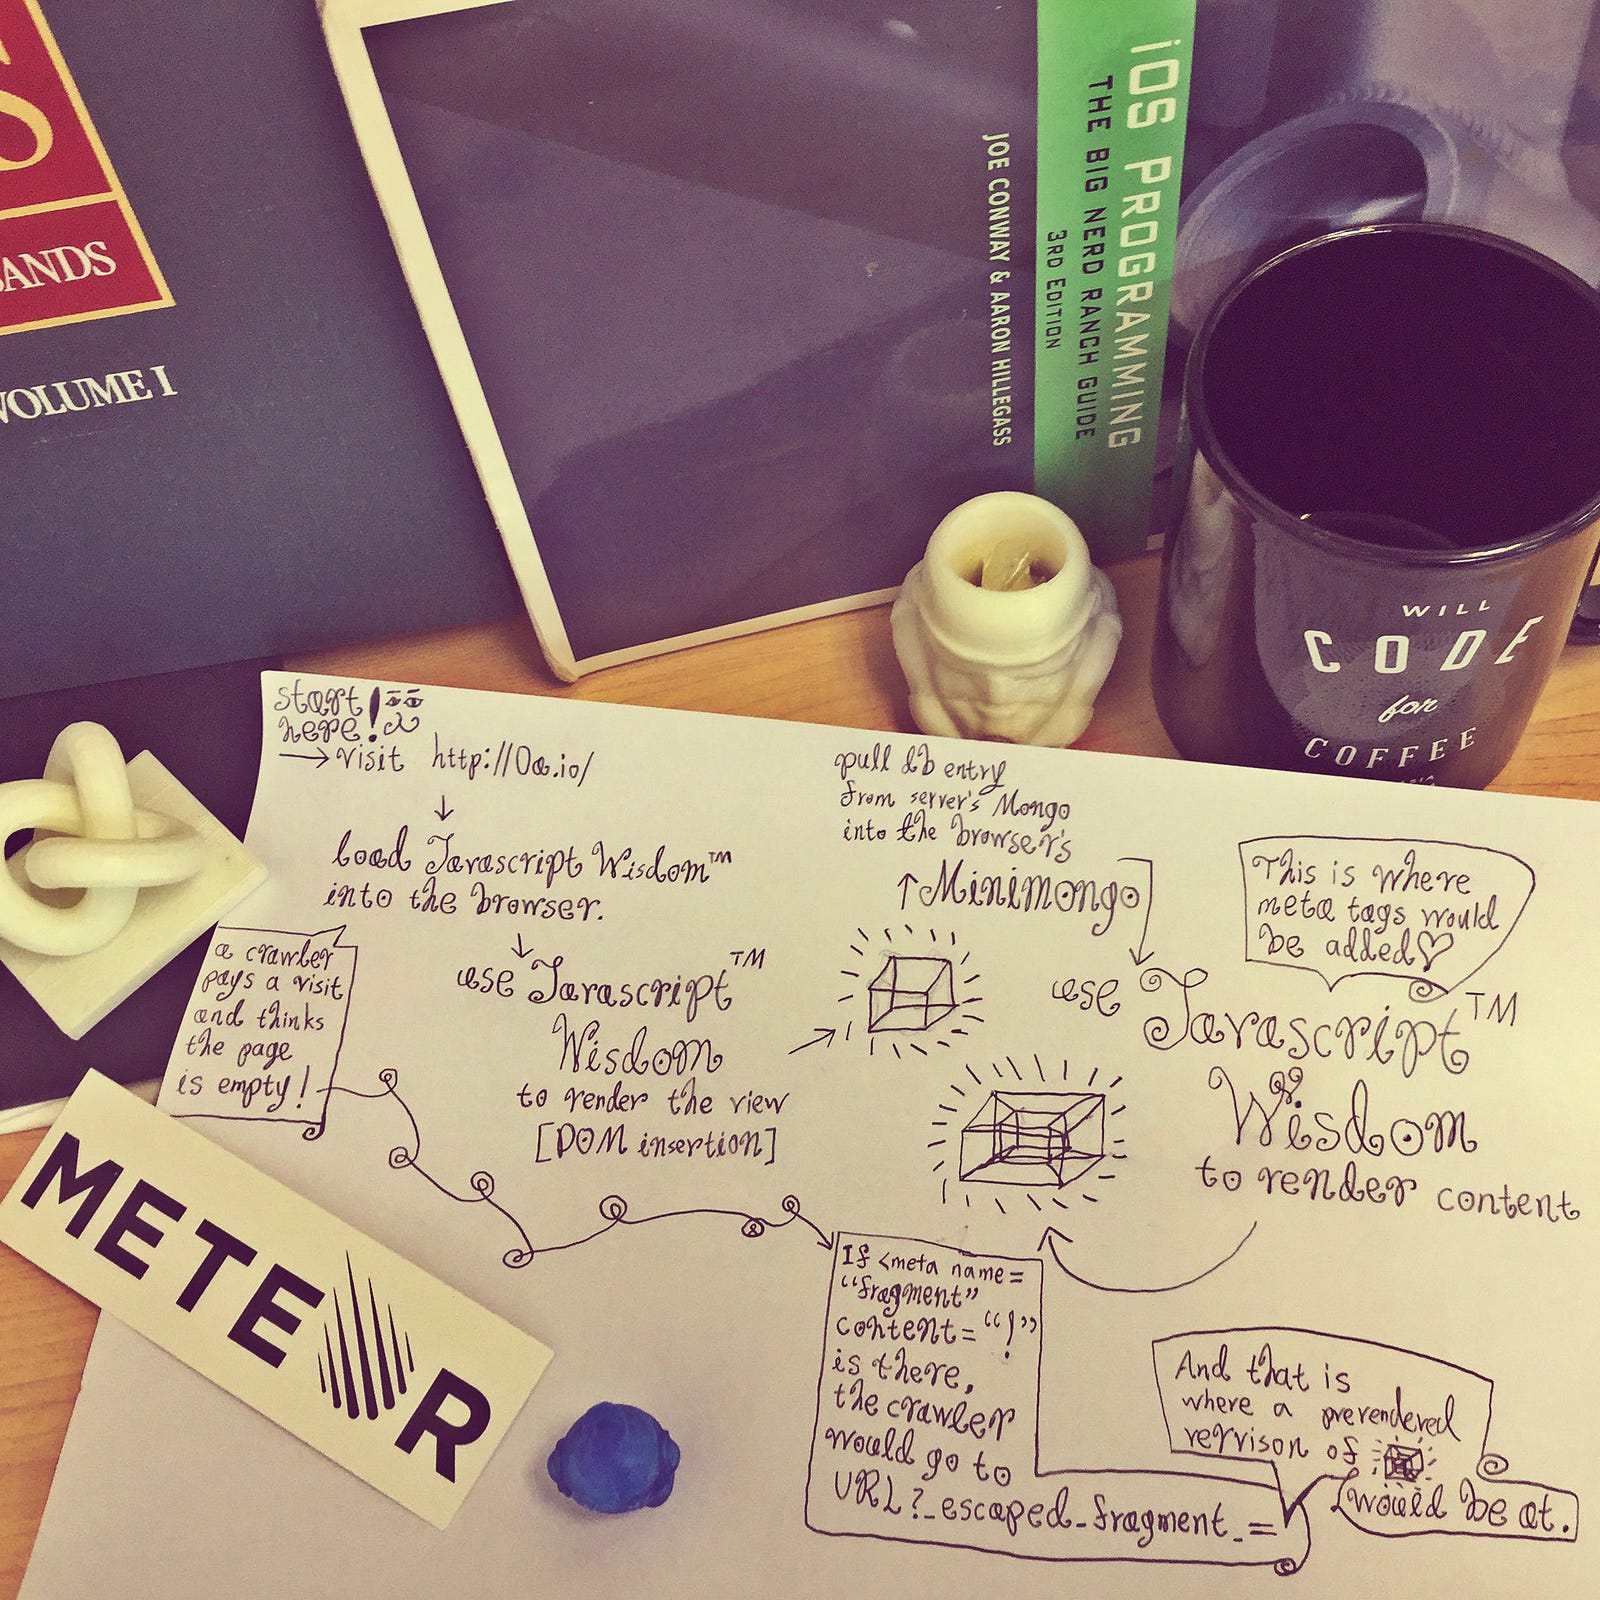 S
ANDS
VOLUME I
iOS PROGRAMMING
THE BIG NERD RANCH GUIDE
3RD EDITION
JOE CONWAY & AARON HILLEGASS
WILL
CODE
for
COFFEE
start
here!
→ visit http://0a.io/
↓
load Javascript Wisdom™
into the browser.
a crawler
pays a visit
and thinks
the page
is empty!
↓
use Javascript™
Wisdom
to render the view
[DOM insertion]
pull db entry
from server's Mongo
into the browser's
↑ Minimongo
This is where
meta tags would
be added♡
use Javascript™
Wisdom
to render content
If <meta name=
“fragment”
content=“!”
is there,
the crawler
would go to
URL?_escaped_fragment_=
And that is
where a prerendered
vervison of
would be at.
METEOR